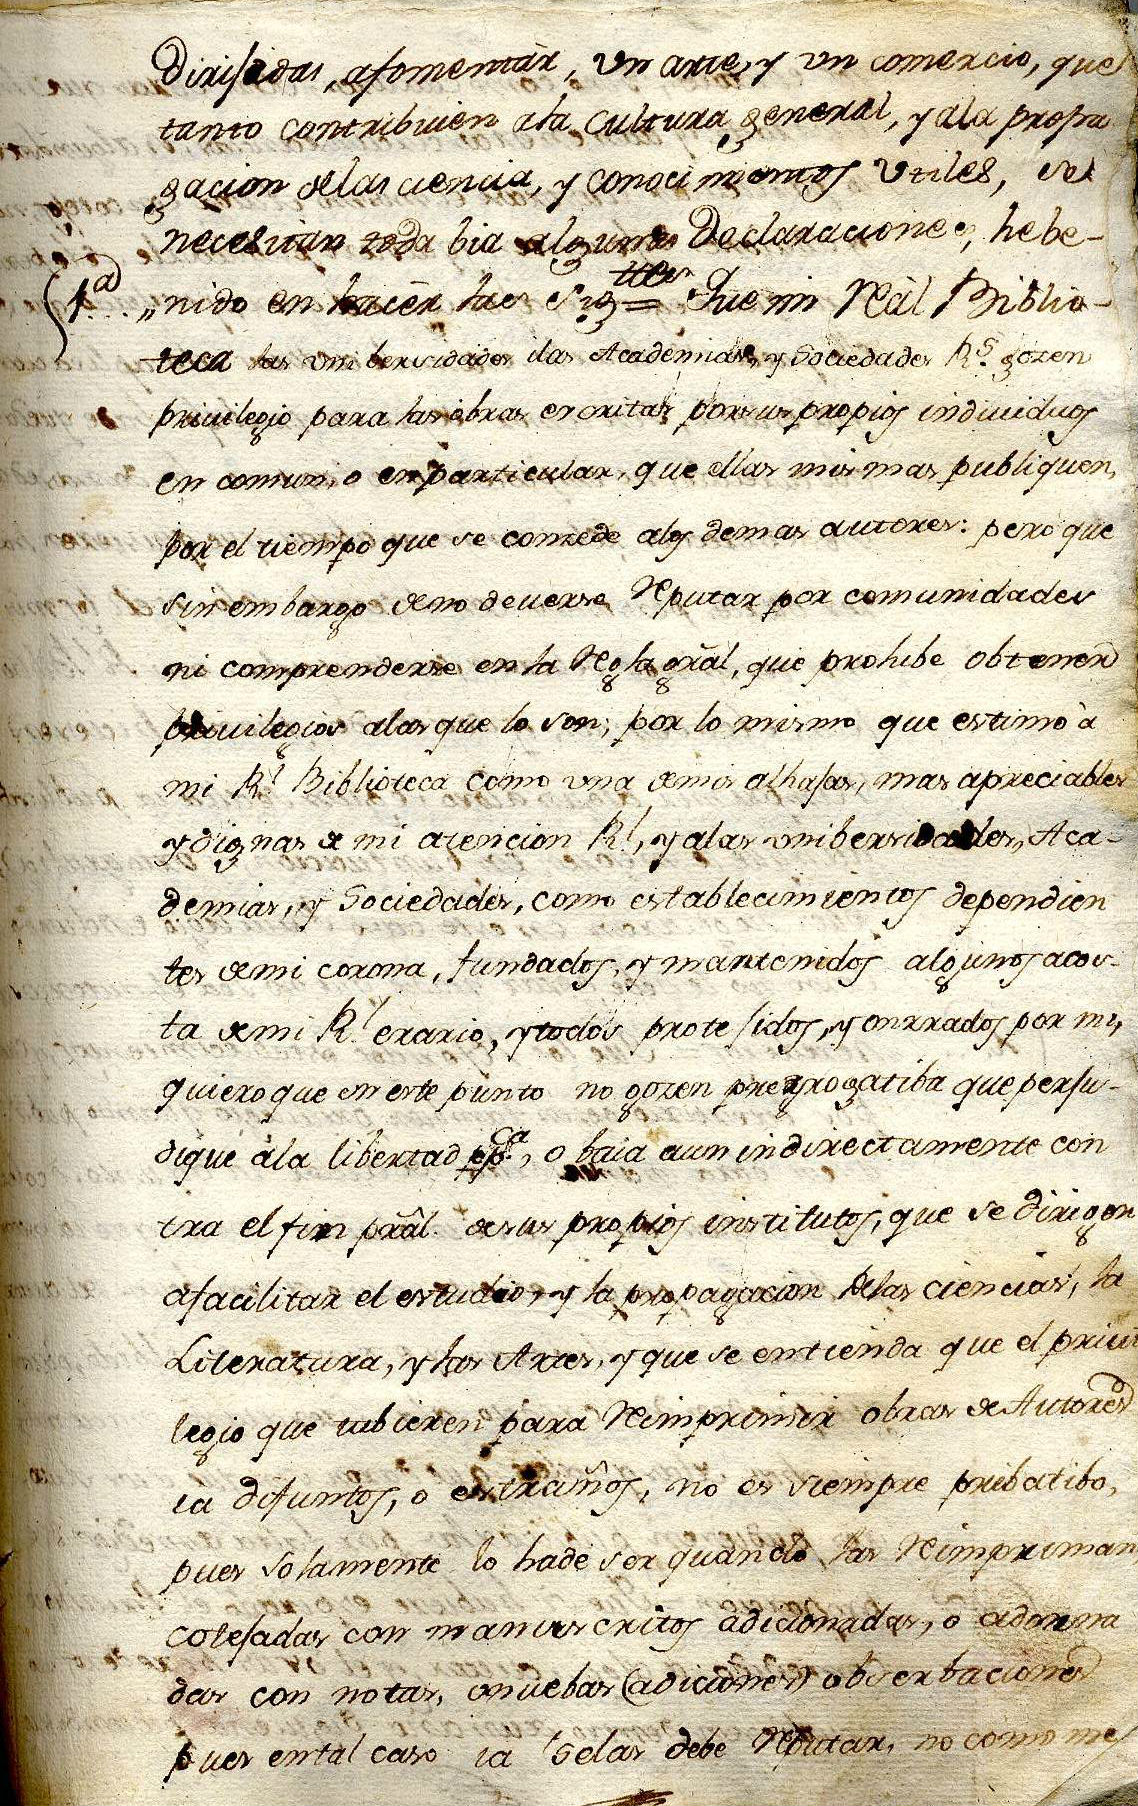 Dirijidas, afomentar, vn arte, y vn comercio, que
tanto contribuien ala cultura general, y ala propa
gacion delas ciencia, y conocimientos vtiles, se
necesitan toda bia algunas Declaraciones, hebe-
1ª „nido en hacer las Sigtes = Que mi Real Biblio-
teca las vnibersidades ilas Academias, y Sociedades Rs. gozen
privilegio para las obras escritas por sus propios individuos
en comun, o en particular, que ellas mismas publiquen,
por el tiempo que se conzede alos demas autores: pero que
sin embargo de no deverse Reputar por comunidades
ni comprenderse en la Regla grãl, que prohibe obtener
privilegios alas que lo son; por lo mismo que estimo à
mi Rl Biblioteca como vna demis alhajas, mas apreciables
y dignas de mi atencion Rl, y alas vnibersidades, Aca-
demias, y Sociedades, como establecimientos dependien
tes demi corona, fundados, y mantenidos algunos acos-
ta demi Rl erario, y todos protejidos, y onrrados por mi,
quiero que en este punto no gozen prerrogatiba que perju-
dique àla libertad ppca, o baia aun indirectamente con
tra el fin prãl. desus propios institutos, que se dirigen
afacilitar el estudio, y la propagacion delas ciencias, la
Literatura, y las Artes, y que se entienda que el privi
legio que tubieren para Reimprimir obras de Autores
ia difuntos, ó estraños, no es siempre pribatibo,
pues solamente lo hade ser quando las Reimpriman
cotejadas con manuscritos adicionadas, o adorna
das con notas, onuebas (adiciones) obserbaciones
pues ental caso ia selas debe Reputar, no como me